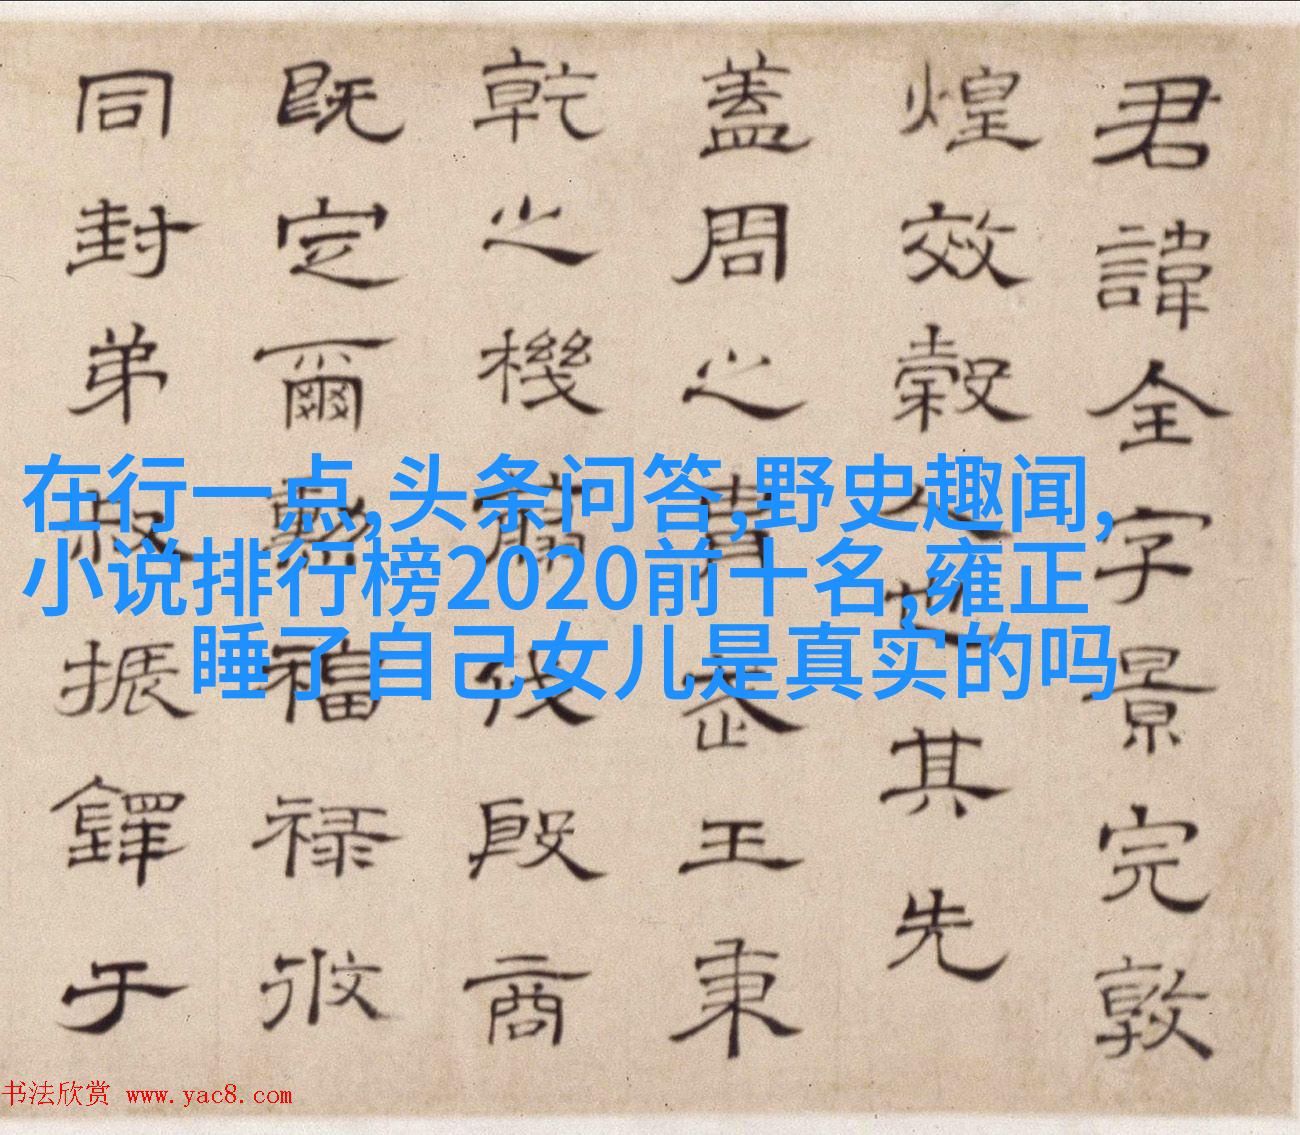 君諱全字景完敦
煌效穀人也其先
蓋周之胄武王秉
乾之機翦伐殷商
既定爾勳福禄攸
同封弟叔振鐸于
在行一点,头条问答,野史趣闻,
小说排行榜2020前十名,雍正
睡了自己女儿是真实的吗
书法欣赏 www.yac8.com